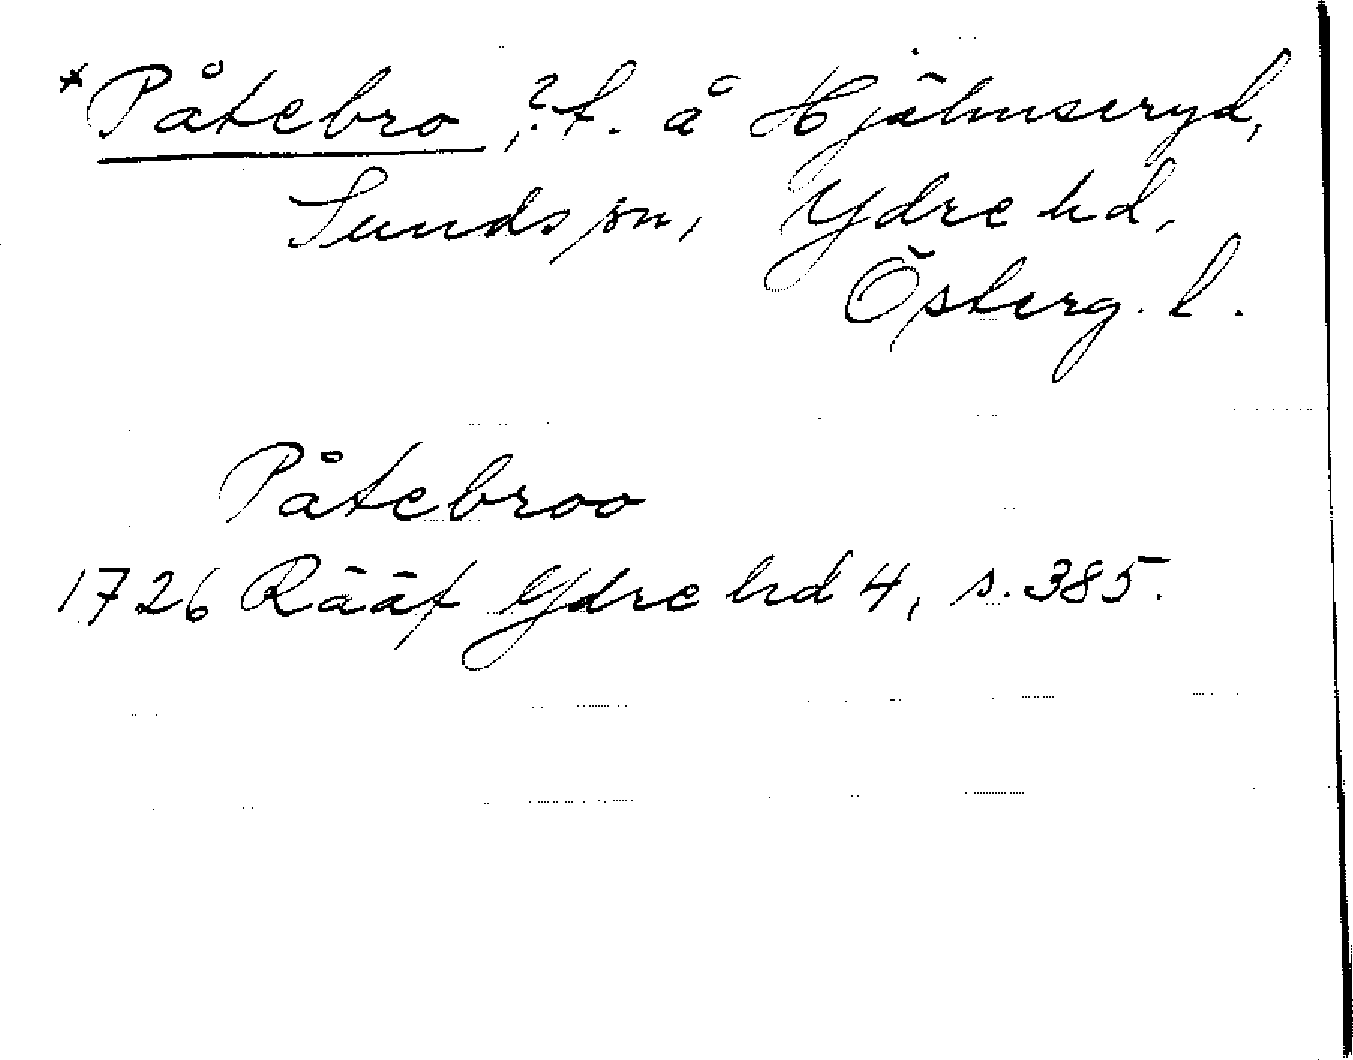 *Påtebro, ? t. å Hjälmseryd,
Sunds sn, Ydre hd,
Österg. l.
Påtebroo
1726 Rääf Ydre hd 4, s. 385.